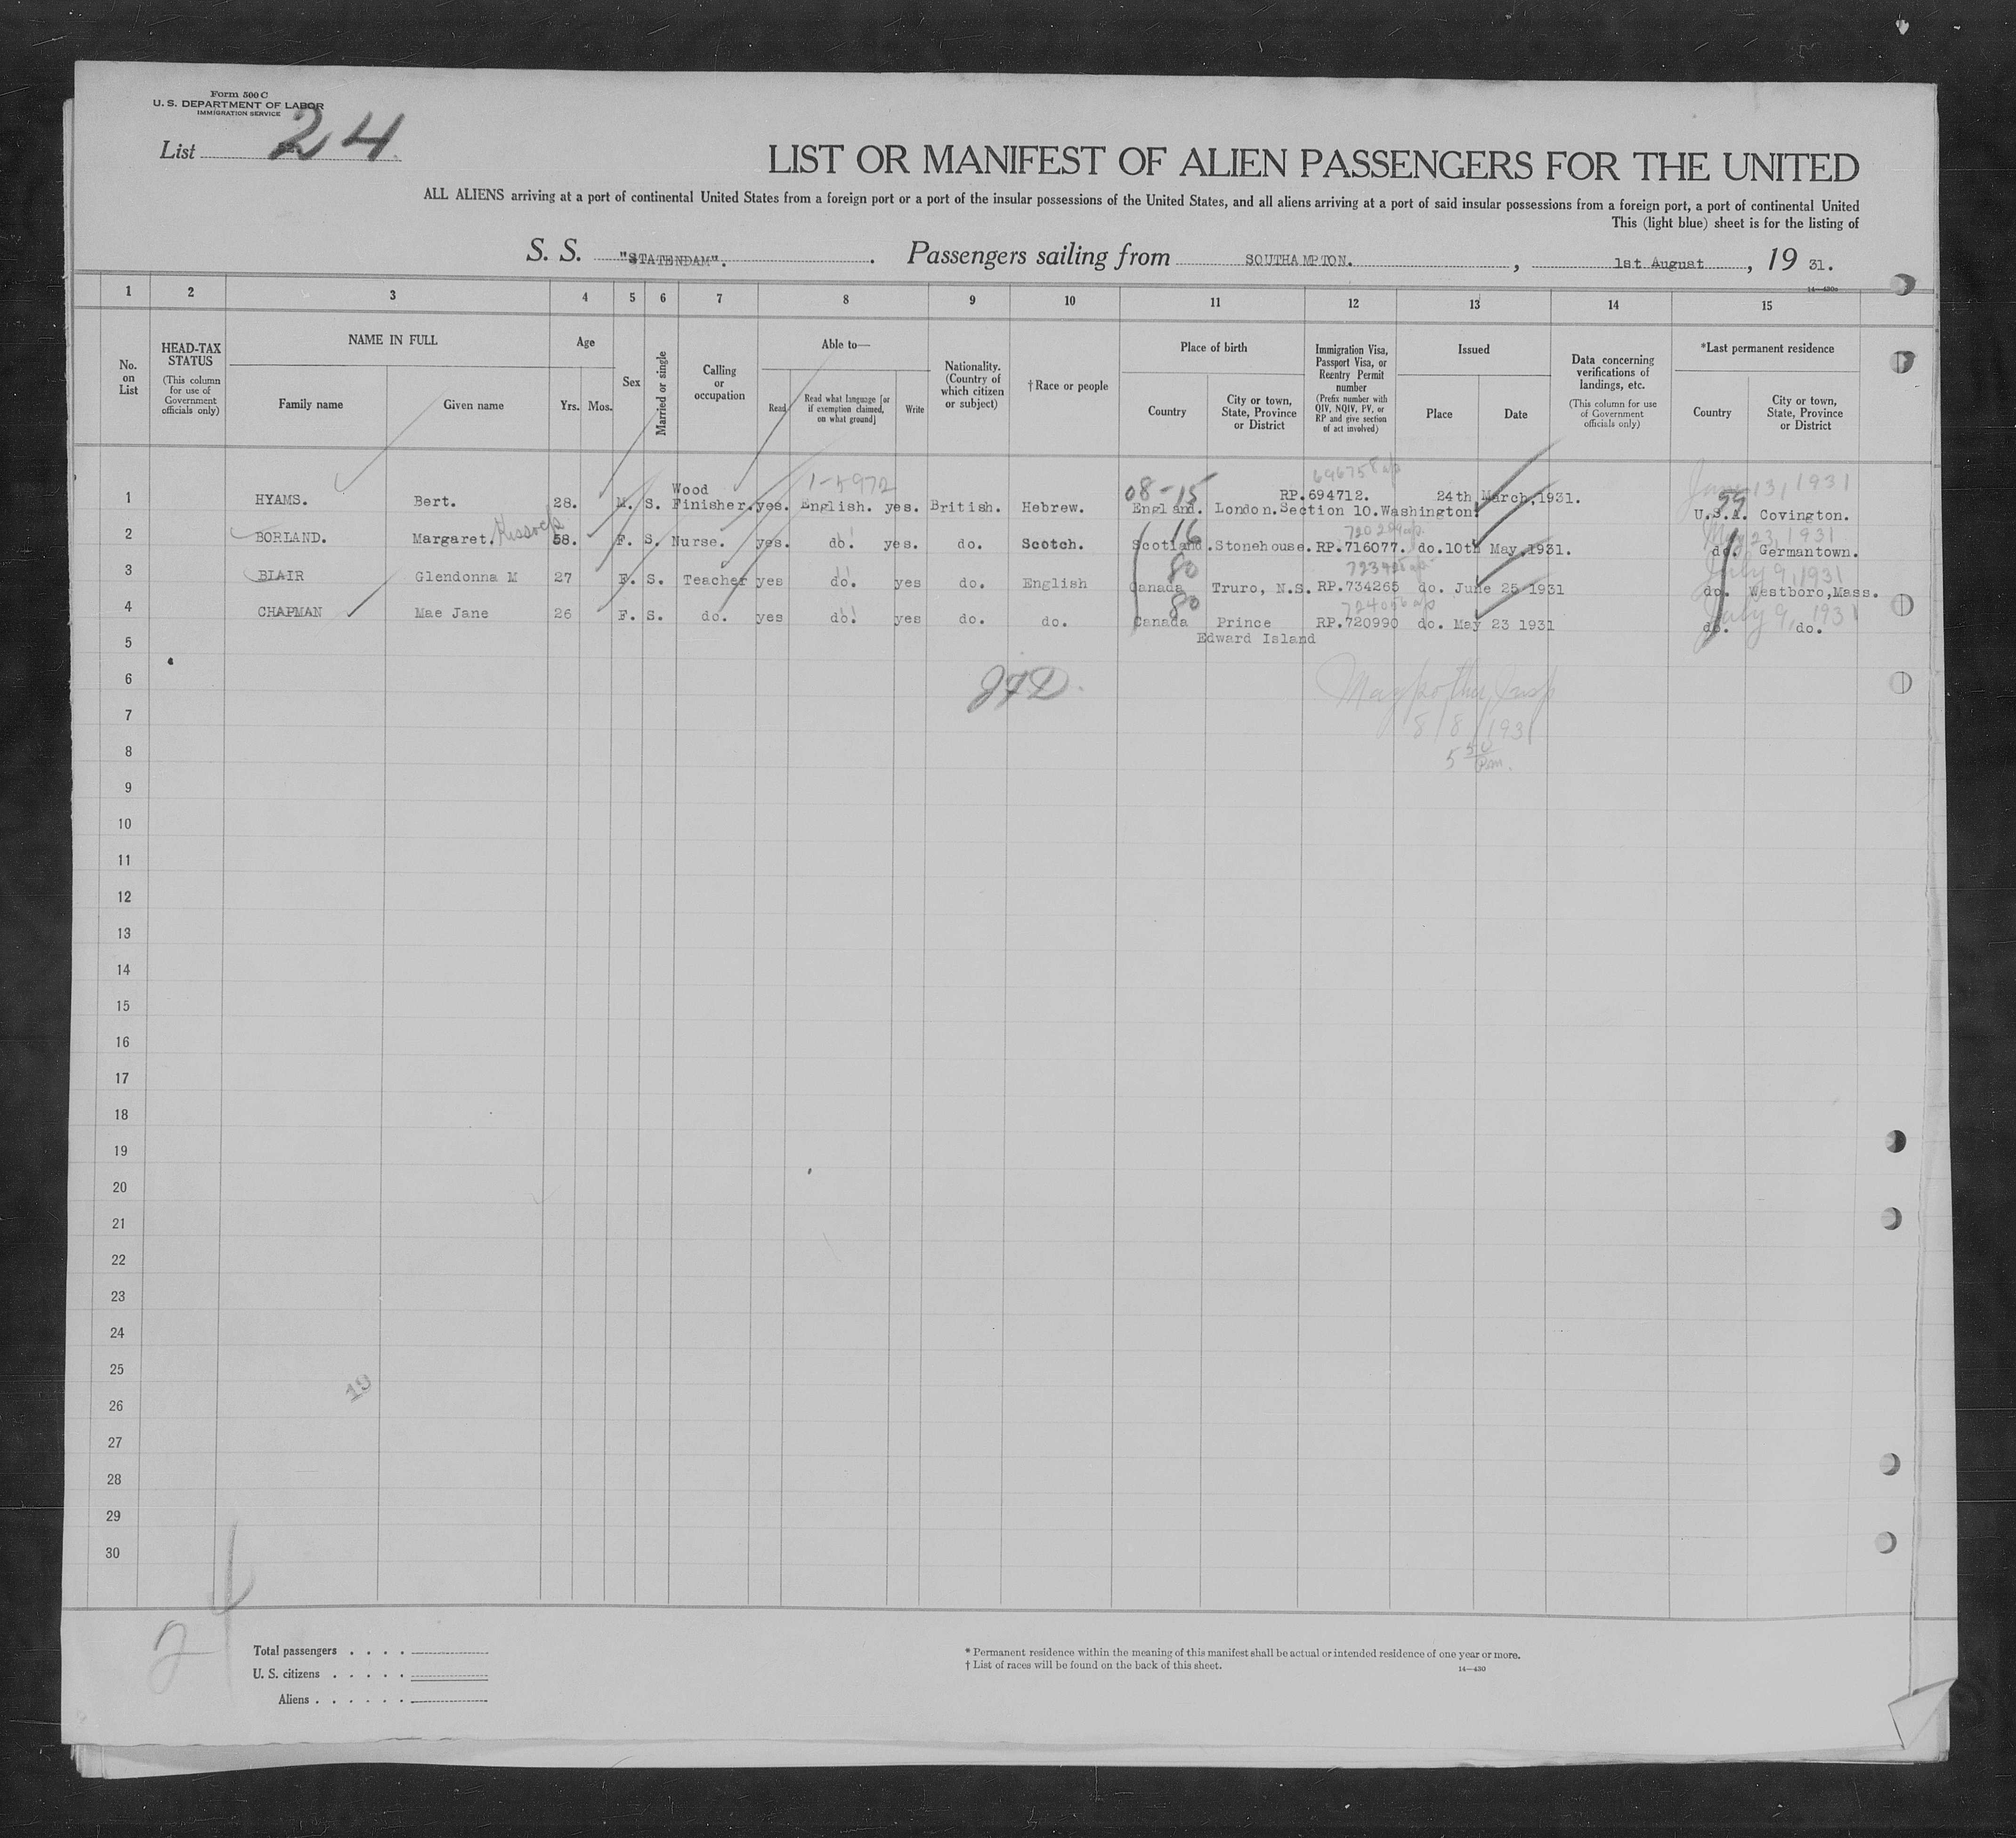 Form 500 C
U. S. DEPARTMENT OF LABOR
IMMIGRATION SERVICE
List 24
LIST OR MANIFEST OF ALIEN PASSENGERS FOR THE UNITED
ALL ALIENS arriving at a port of continental United States from a foreign port or a port of the insular possessions of the United States, and all aliens arriving at a port of said insular possessions from a foreign port, a port of continental United
This (light blue) sheet is for the listing of
S. S. "STATENDAM". Passengers sailing from SOUTHAMPTON. , 1st August , 19 31.
14—430a
1 2 3 4 5 6 7 8 9 10 11 12 13 14 15
No. on List
HEAD-TAX STATUS (This column for use of Government officials only)
NAME IN FULL
Family name Given name
Age
Yrs. Mos.
Sex
Married or single
Calling or occupation
Able to—
Read
Read what language [or if exemption claimed, on what ground]
Write
Nationality. (Country of which citizen or subject)
†Race or people
Place of birth
Country
City or town, State, Province or District
Immigration Visa, Passport Visa, or Reentry Permit number (Prefix number with QIV, NQIV, PV, or RP and give section of act involved)
Issued
Place Date
Data concerning verifications of landings, etc. (This column for use of Government officials only)
*Last permanent residence
Country
City or town, State, Province or District
1-5972 08-15 June 13, 1931
1 HYAMS. Bert. 28. M. S. Wood Finisher. yes. English. yes. British. Hebrew. England. London. RP.694712. Section 10. Washington. 24th March, 1931. U.S.A. Covington.
16 May 23, 1931
2 BORLAND. Margaret. 58. F. S. Nurse. yes. do. yes. do. Scotch. Scotland. Stonehouse. RP.716077. do. 10th May, 1931. do. Germantown.
80 July 9, 1931
3 BLAIR Glendonna M 27 F. S. Teacher yes do. yes do. English Canada Truro, N.S. RP.734265 do. June 25 1931 do. Westboro, Mass.
80 July 9, 1931
4 CHAPMAN Mae Jane 26 F. S. do. yes do. yes do. do. Canada Prince Edward Island RP.720990 do. May 23 1931 do. do.
5
6
JFD.
7
8/8/1931
8
5 50 pm.
9
10
11
12
13
14
15
16
17
18
19
20
21
22
23
24
25
19
26
27
28
29
30
24
Total passengers
U. S. citizens
Aliens
* Permanent residence within the meaning of this manifest shall be actual or intended residence of one year or more.
† List of races will be found on the back of this sheet.
14—430